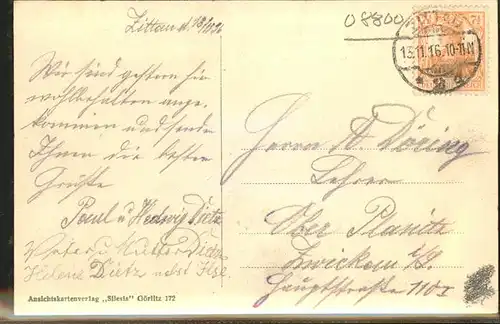 Zittau d. 13/11 16
08800
ZITTAU
13.11.16. 10-11 V
Wir sind gestern hier
wohlbehalten ange-
kommen und senden
Ihnen die besten
Grüße
Paul u Hedwig Dietz
Vater u Mutter Dietz
Helene Dietz nebst Ilse
Herrn A. Döring
Lehrer
Ober Planitz
Zwickau i/S.
Hauptstraße 110 I
Ansichtskartenverlag „Silesia" Görlitz 172